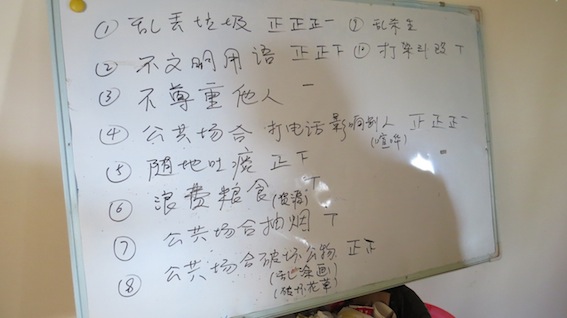 ① 乱丢垃圾 正正正一 ⑨ 乱
② 不文明用语 正正下 ⑩ 打
③ 不尊重他人 一
④ 公共场合打电话影响别人 正正正一
(喧哗)
⑤ 随地吐痰 正下
⑥ 浪费粮食(资源) 丅
⑦ 公共场合抽烟 丅
⑧ 公共场合破坏公物 正正
(乱涂画)
(破坏花草)